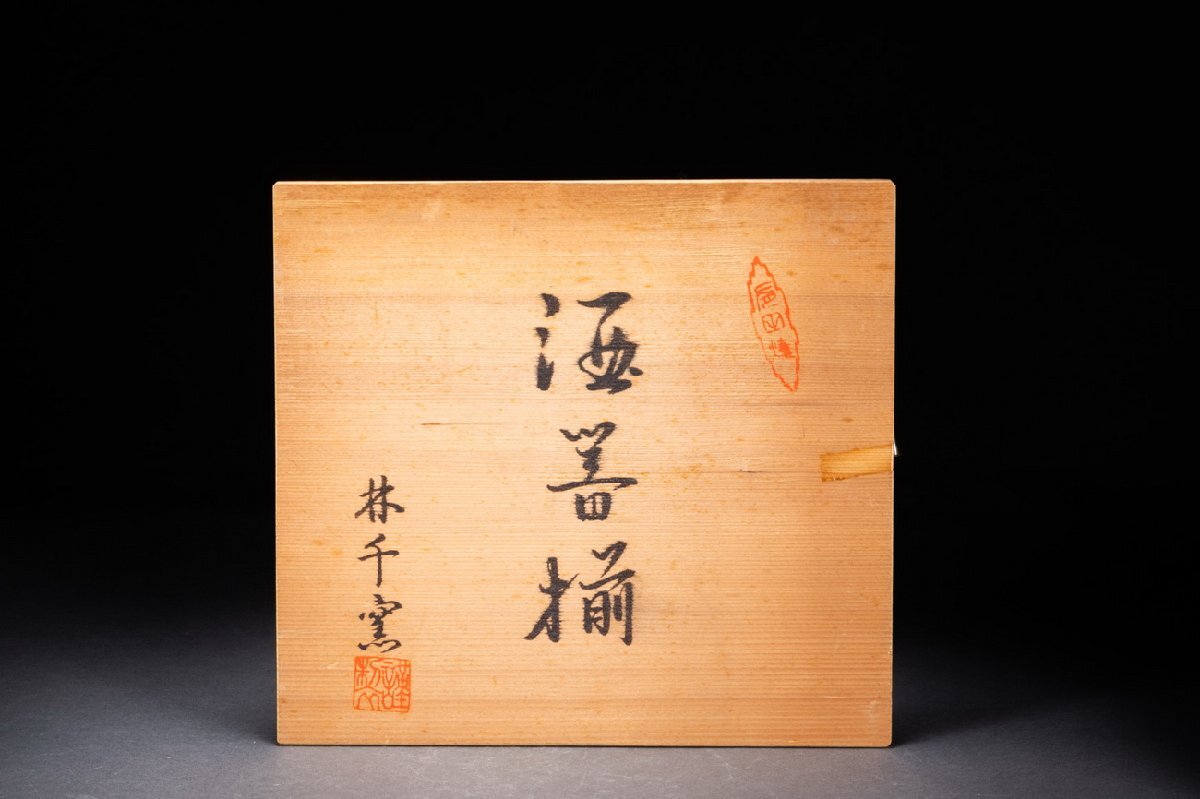 酒器揃
林千窯